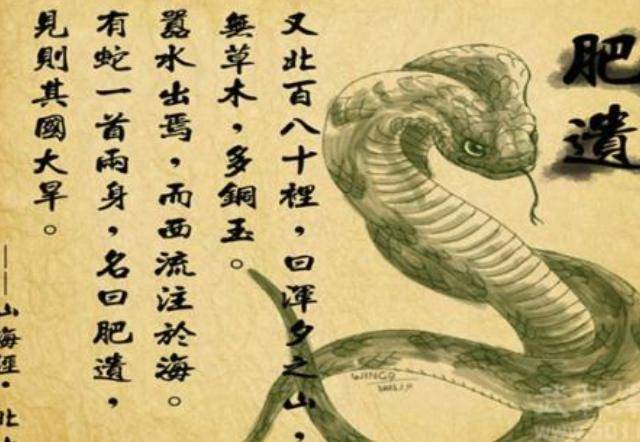 肥遺
又北百八十裡，曰渾夕之山，
無草木，多銅玉。
囂水出焉，而西流注於海。
有蛇一首兩身，名曰肥遺，
見則其國大旱。
——山海經·北
WINGO